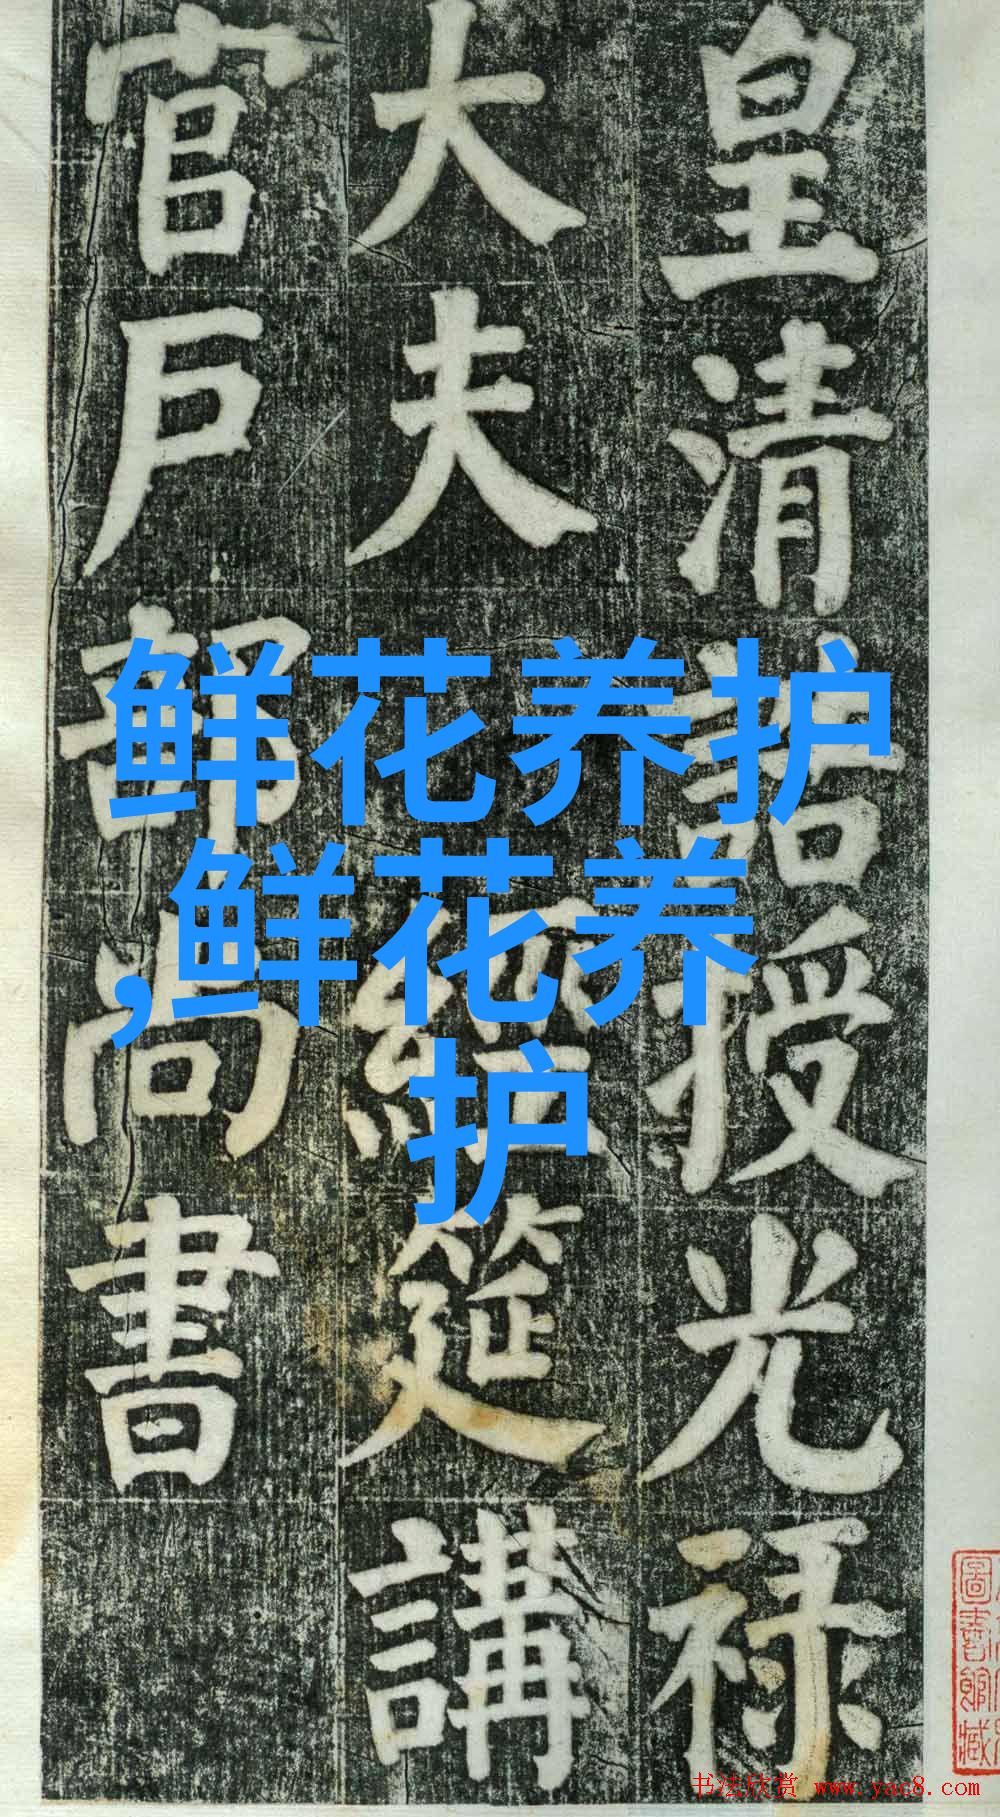 皇清誥授光禄
大夫 經筵講
官戶部尚書
鲜花养护
,鲜花养
护
圖書館藏
书法欣赏 www.yac8.com